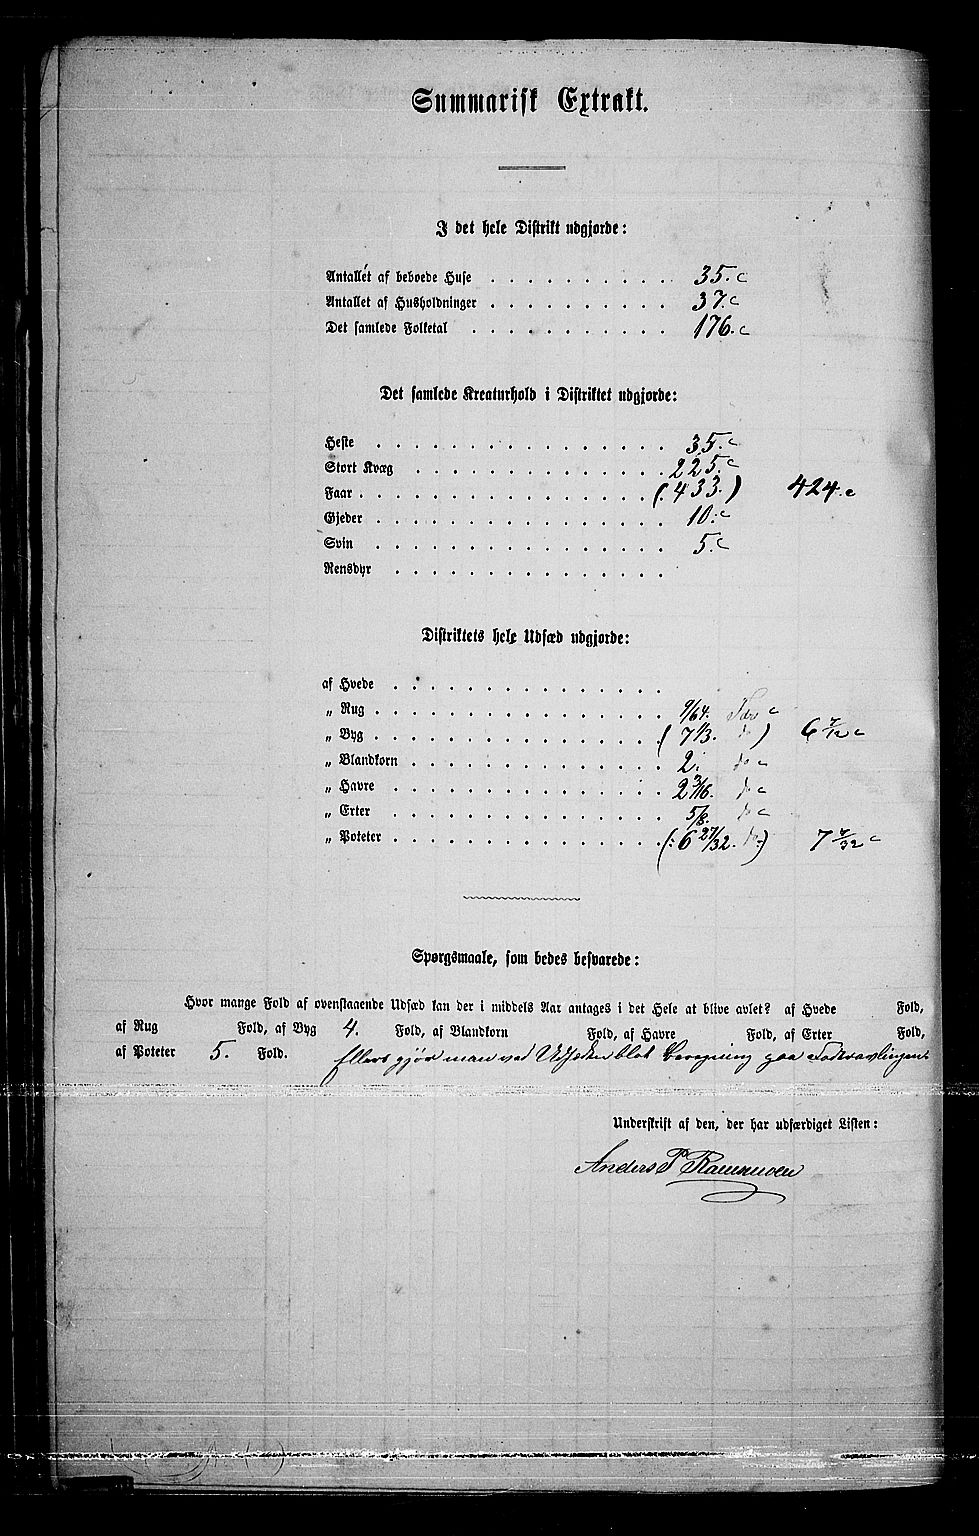 Summarisk Extrakt.
I det hele Distrikt udgjorde:
Antallet af beboede Huse . . . . . . . . . . 35. c
Antallet af Husholdninger . . . . . . . . . . 37. c
Det samlede Folketal . . . . . . . . . . . 176. c
Det samlede Kreaturhold i Distriktet udgjorde:
Heste . . . . . . . . . . . . . . . . 35. c
Stort Kvæg . . . . . . . . . . . . . . 225. c
Faar . . . . . . . . . . . . . . . . . (433.) 424. c
Gjeder . . . . . . . . . . . . . . . . 10. c
Svin . . . . . . . . . . . . . . . . 5. c
Rensdyr . . . . . . . . . . . . . . .
Distriktets hele Udsæd udgjorde:
af Hvede . . . . . . . . . . . . . . .
„ Rug . . . . . . . . . . . . . . . . 9/64. Tdr c
„ Byg . . . . . . . . . . . . . . . . (7 1/3. do) 6 7/12 c
„ Blandkorn . . . . . . . . . . . . . 2. do c
„ Havre . . . . . . . . . . . . . . . 2 3/16. do c
„ Erter . . . . . . . . . . . . . . . 5/8. do c
„ Poteter . . . . . . . . . . . . . . . (: 6 27/32. do :) 7 7/32 c
Spørgsmaale, som bedes besvarede:
Hvor mange Fold af ovenstaaende Udsæd kan der i middels Aar antages i det Hele at blive avlet? af Hvede Fold,
af Rug Fold, af Byg 4. Fold, af Blandkorn Fold, af Havre Fold, af Erter Fold,
af Poteter 5. Fold. Ellers gjør man ved Udsæden blot Beregning paa Foderavlingen
Underskrift af den, der har udfærdiget Listen:
Anders P Rasmusen